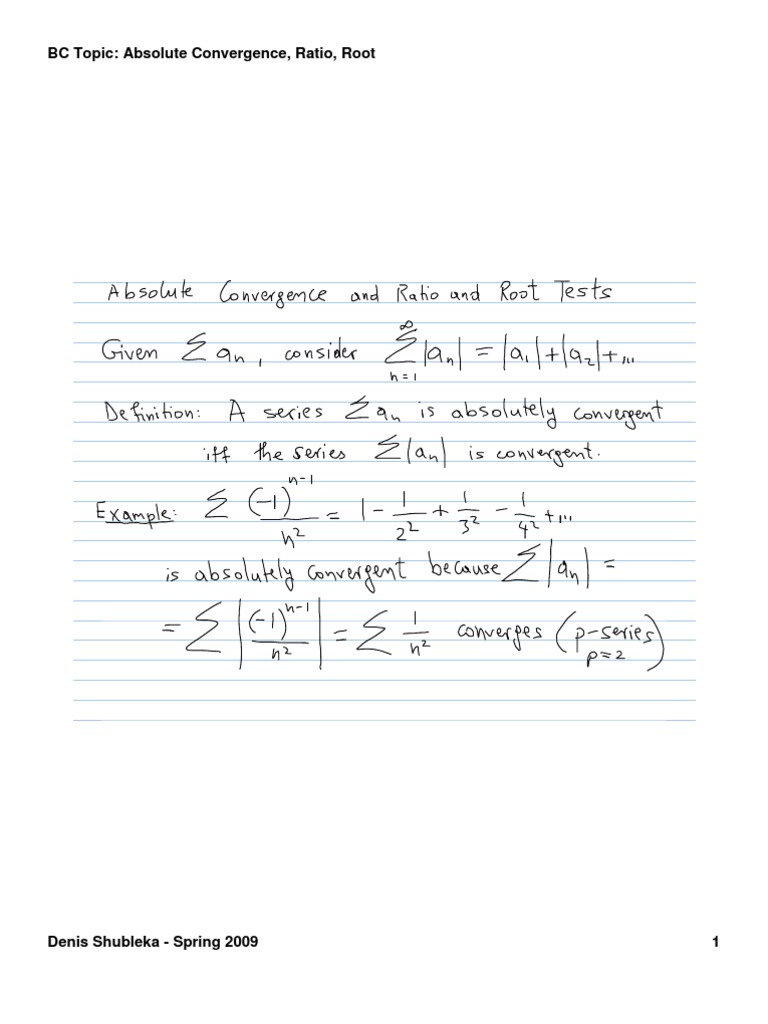 BC Topic: Absolute Convergence, Ratio, Root
Absolute Convergence and Ratio and Root Tests
Given Σ aₙ, consider ∞Σn=1 |aₙ| = |a₁| + |a₂| + ...
Definition: A series Σ aₙ is absolutely convergent
iff the series Σ |aₙ| is convergent.
Example: Σ (-1)ⁿ⁻¹/n² = 1 - 1/2² + 1/3² - 1/4² + ...
is absolutely convergent because Σ |aₙ| =
= Σ |(-1)ⁿ⁻¹/n²| = Σ 1/n² converges (p-series p=2)
Denis Shubleka - Spring 2009 1